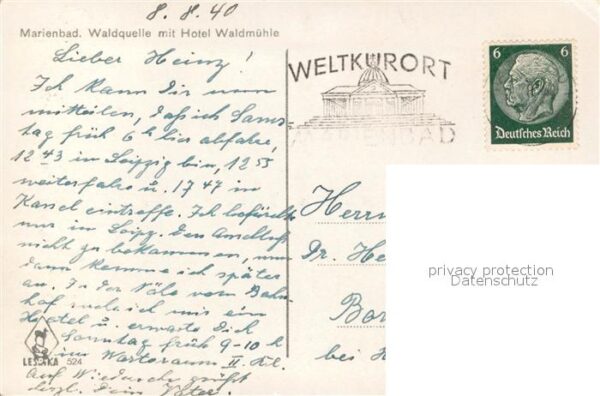 8. 8. 40
Marienbad. Waldquelle mit Hotel Waldmühle
Lieber Heinz!
Ich kann Dir nun
mitteilen, daß ich Sams-
tag früh 6 h hier abfahre,
12 43 in Leipzig bin, 12 55
weiterfahre u. 17 47 in
Kassel eintreffe. Ich befürchte
nur in Leipz. den Anschluß
nicht zu bekommen, nun
dann komme ich später
an. In der Nähe vom Bahn-
hof suche ich mir ein
Hotel u. erwarte Dich
Sonntag früh 9-10 h
im Warteraum II. Kl.
Auf Wiedersehn grüßt
herzl. Dein Vater.
LESSKA 524
WELTKURORT
BAD
6 6
Deutsches Reich
Herrn
Dr. He
Bor
bei
privacy protection
Datenschutz